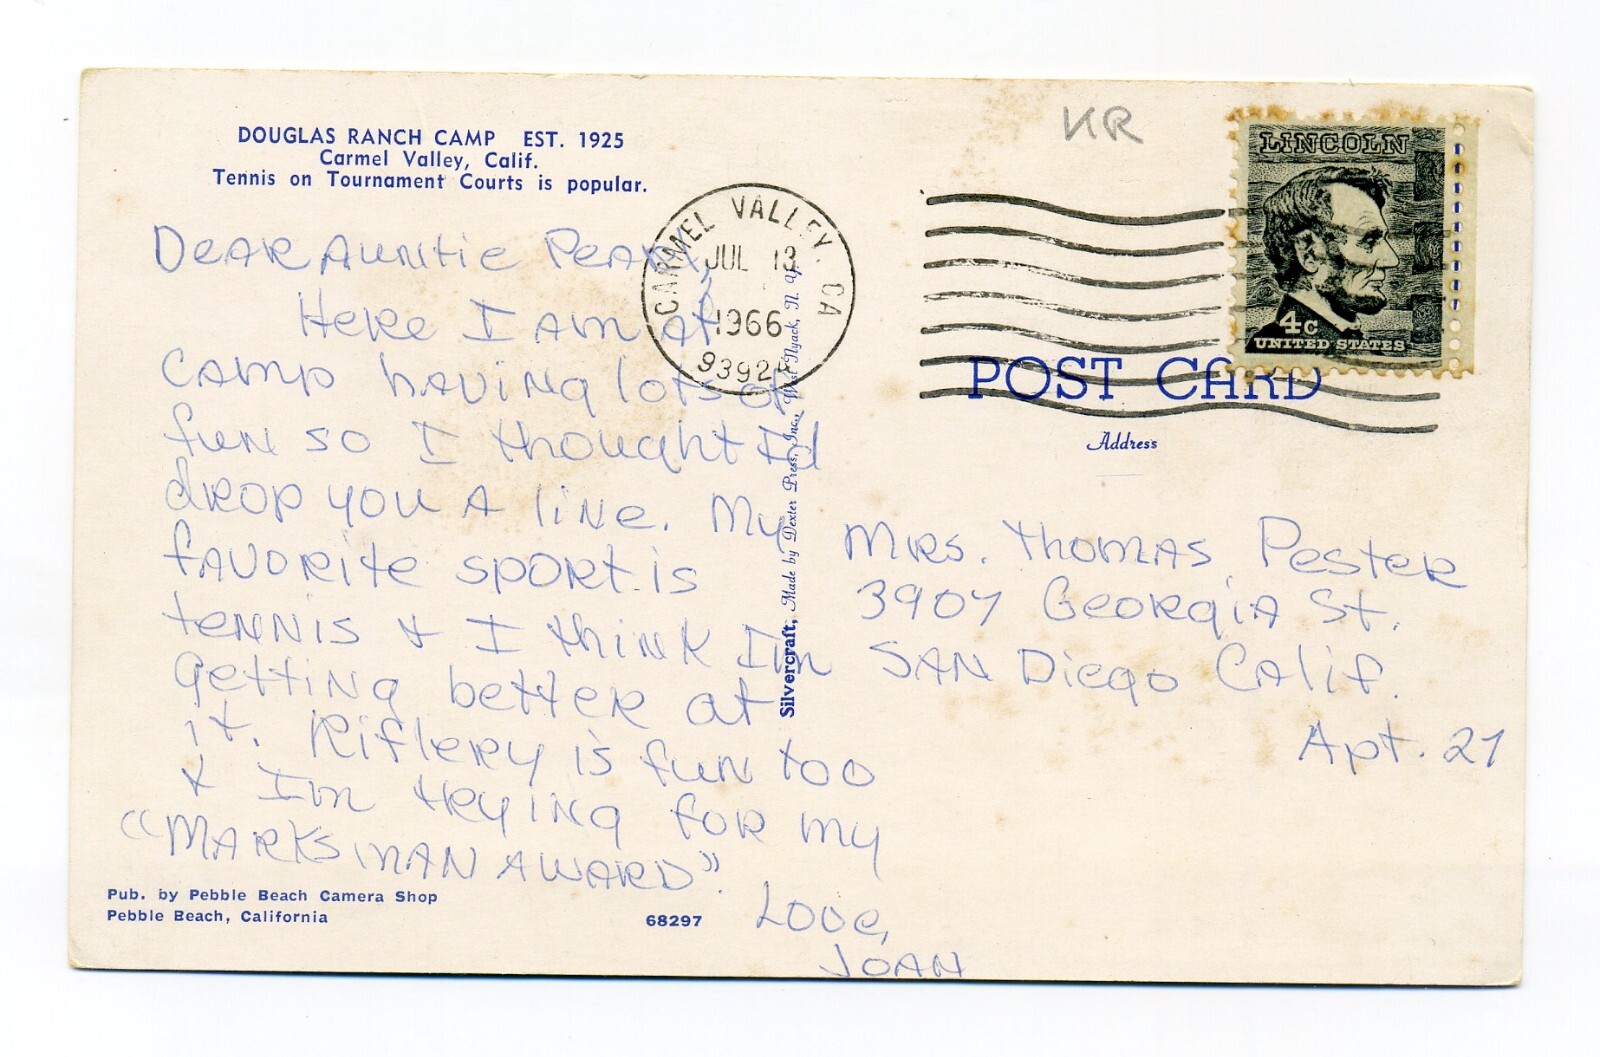 DOUGLAS RANCH CAMP EST. 1925
Carmel Valley, Calif.
Tennis on Tournament Courts is popular.
Dear Auntie Pearl,
Here I am at
camp having lots of
fun so I thought Id
drop you a line. My
favorite sport is
tennis & I think Im
getting better at
it. Riflery is fun too
& Im trying for my
"Marksman Award".
Love,
Joan
Pub. by Pebble Beach Camera Shop
Pebble Beach, California
68297
CARMEL VALLEY, CA
JUL 13
1966
93924
Silvercraft, Made by Dexter Press, Inc., West Nyack, N. Y.
KR
LINCOLN
4c
UNITED STATES
POST CARD
Address
Mrs. Thomas Pester
3907 Georgia St.
San Diego Calif.
Apt. 27